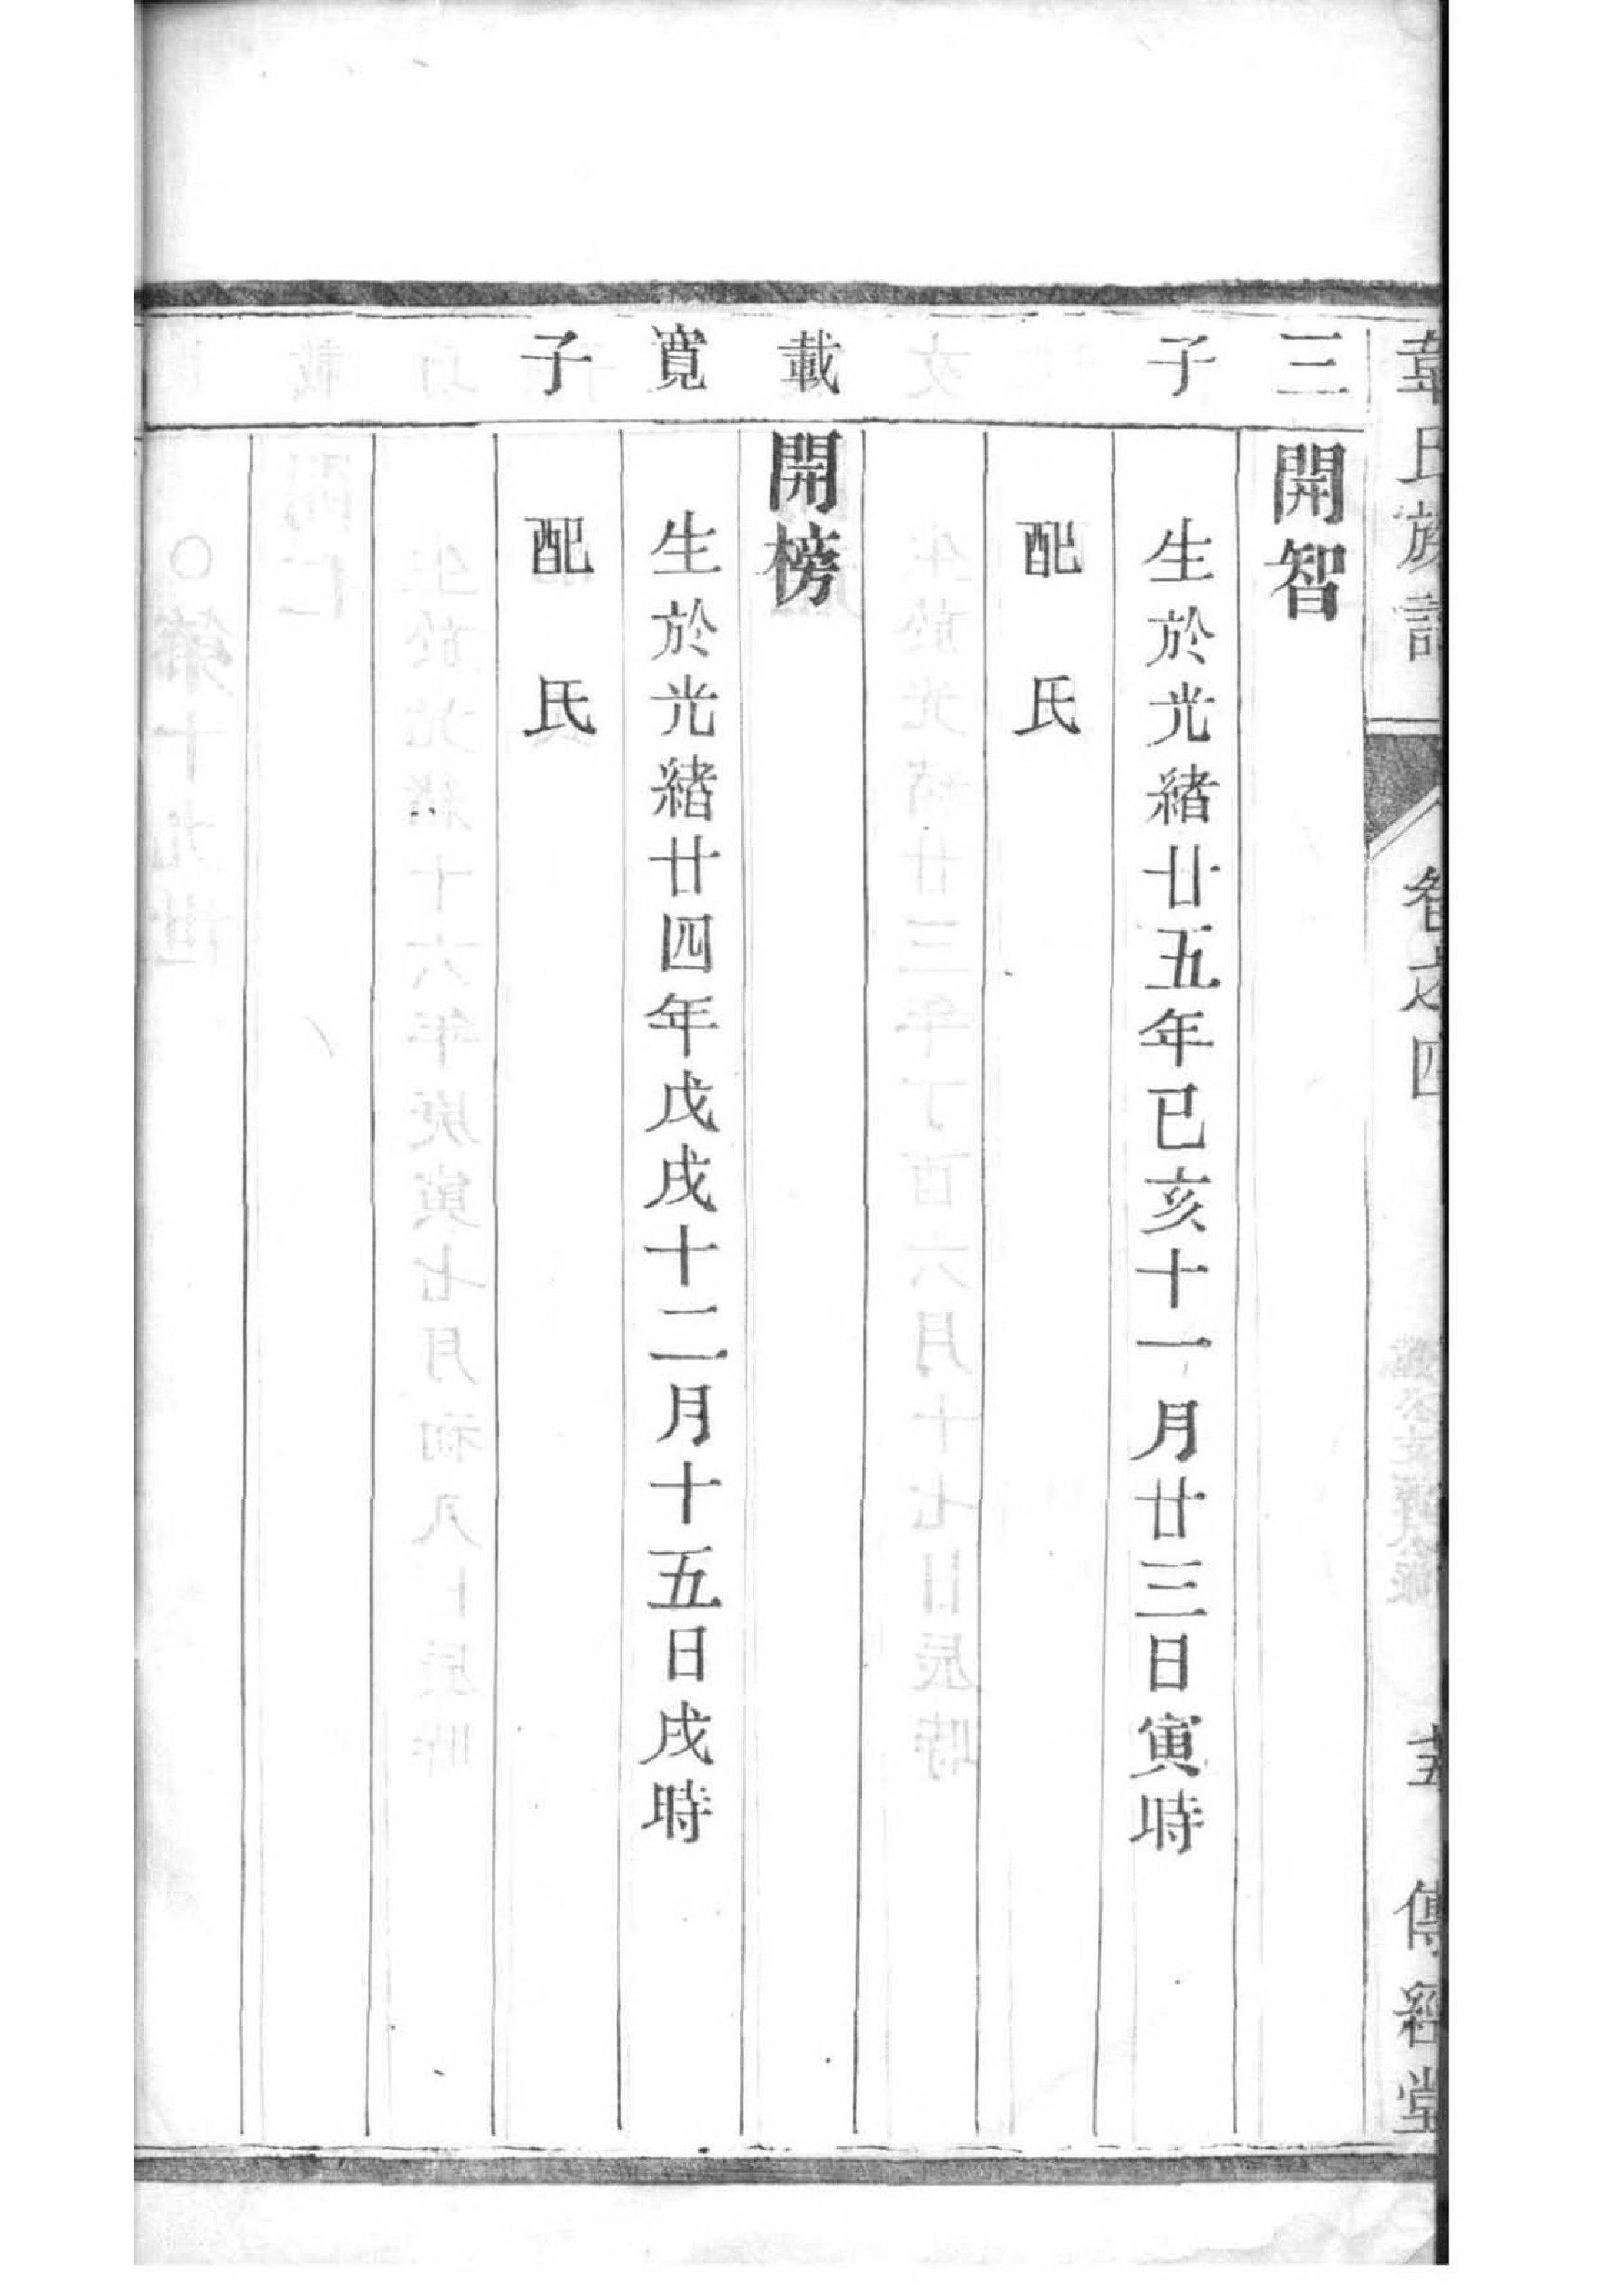 韋氏族譜 卷之四 傳經堂
三子
開智
生於光緒廿五年已亥十一月廿三日寅時
配 氏
載寛子
開榜
生於光緒廿四年戊戌十二月十五日戌時
配 氏